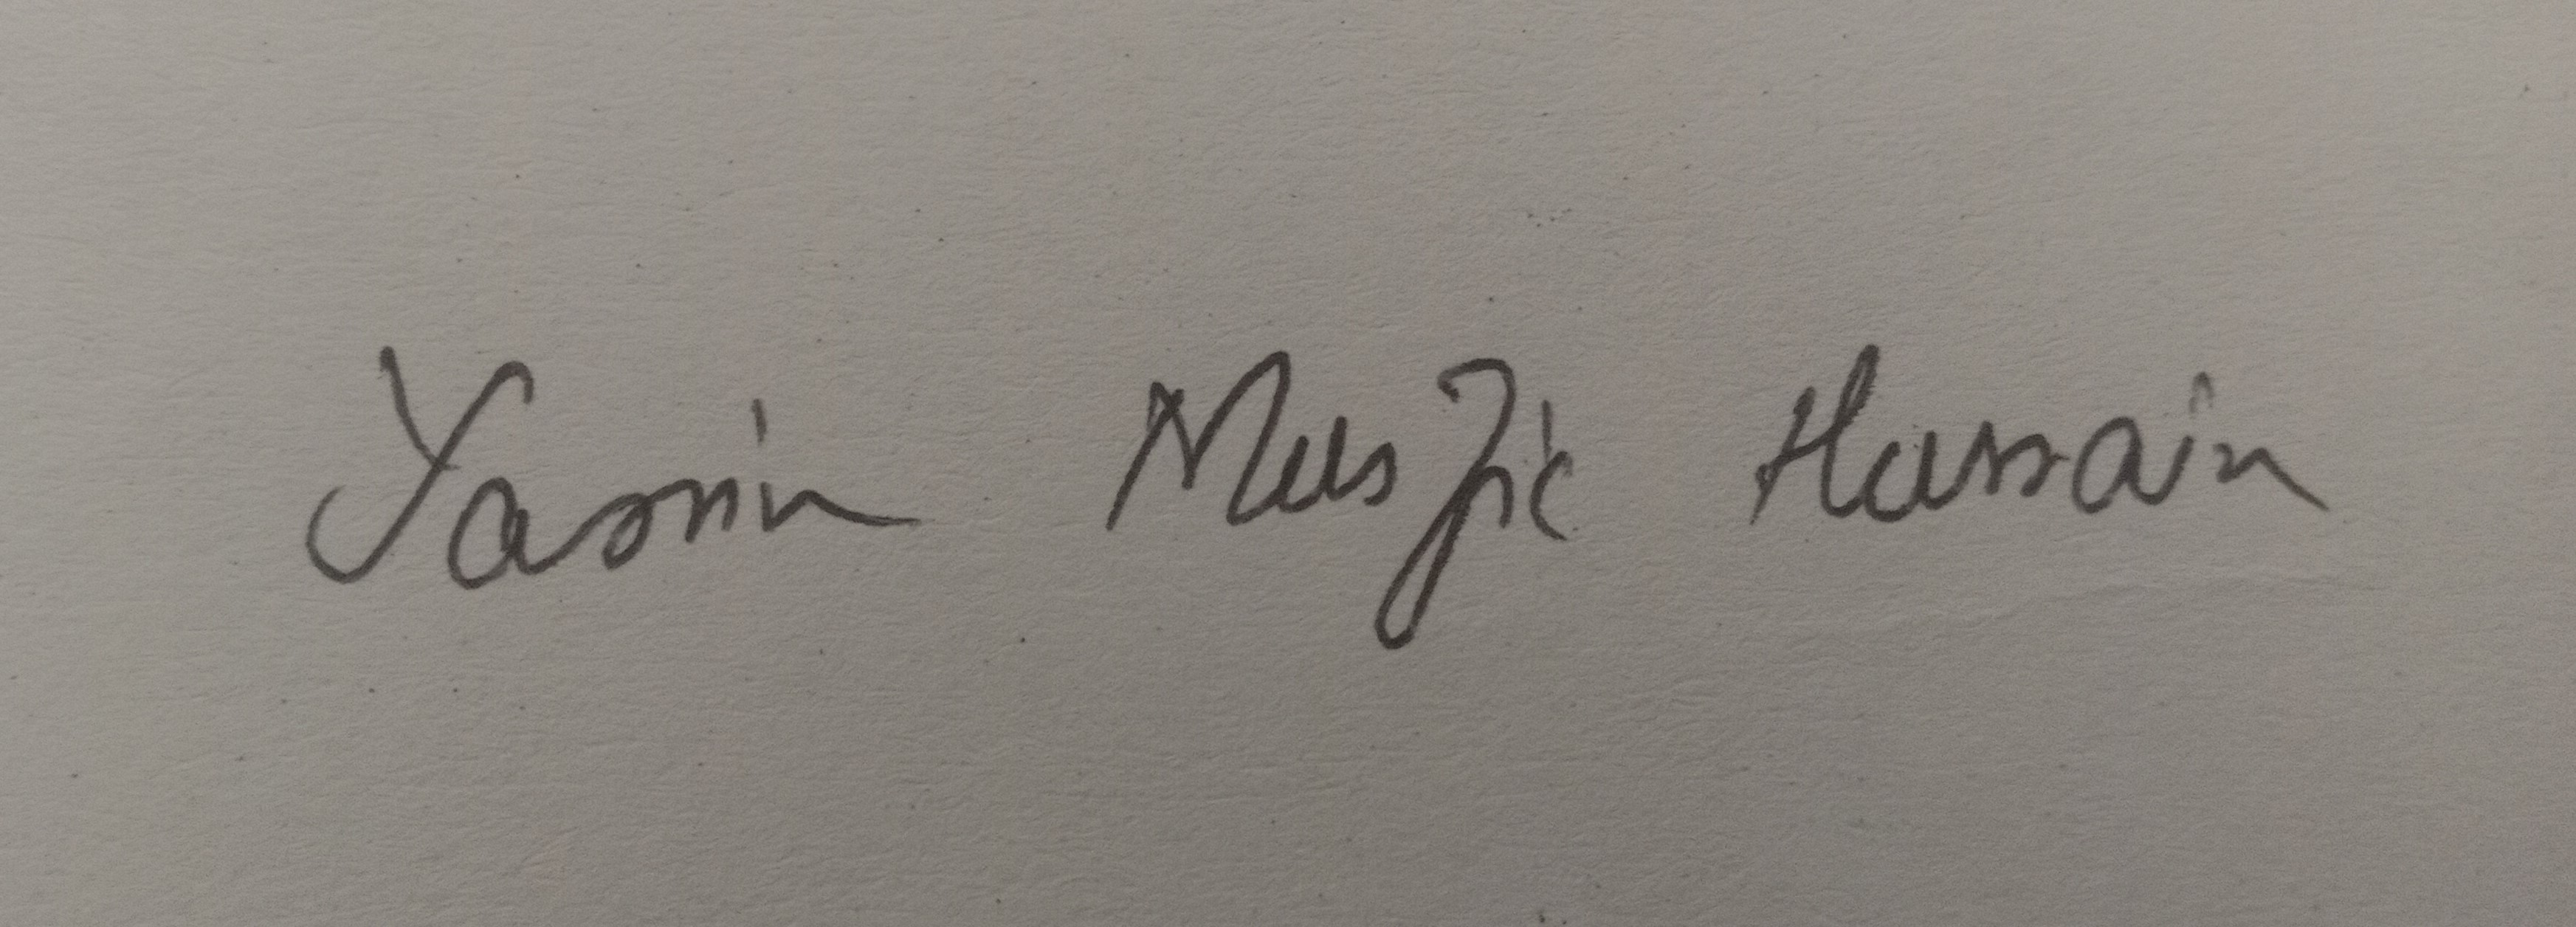 Yassin Musfic Hussain